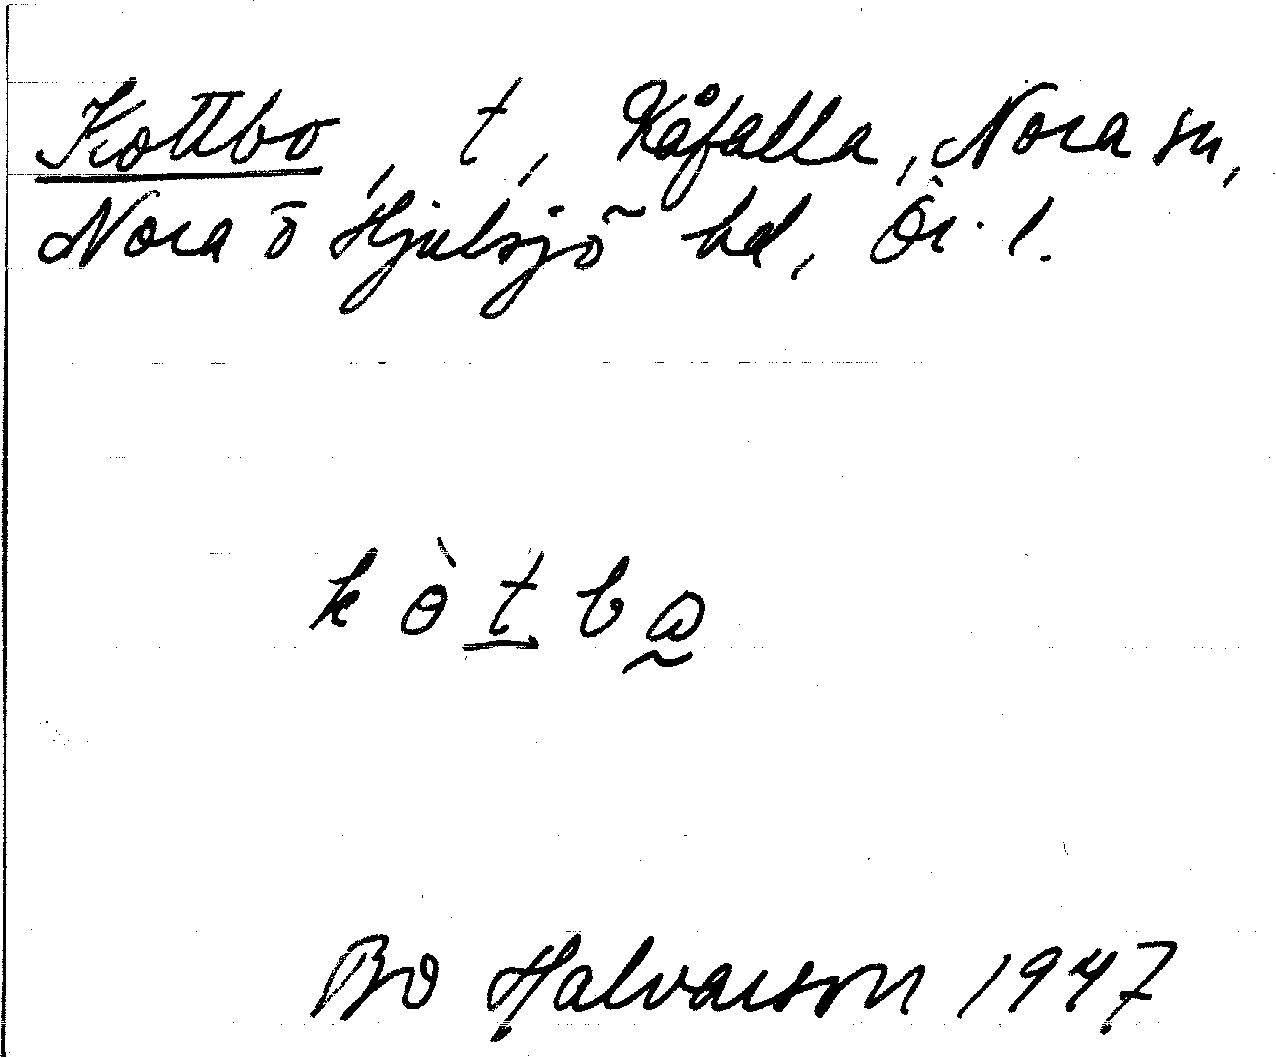 Kottbo, t, Kåfalla, Nora sn,
Nora o Hjulsjö hd, Ör. l.
k ò t b ω
Bo Halvarson 1947